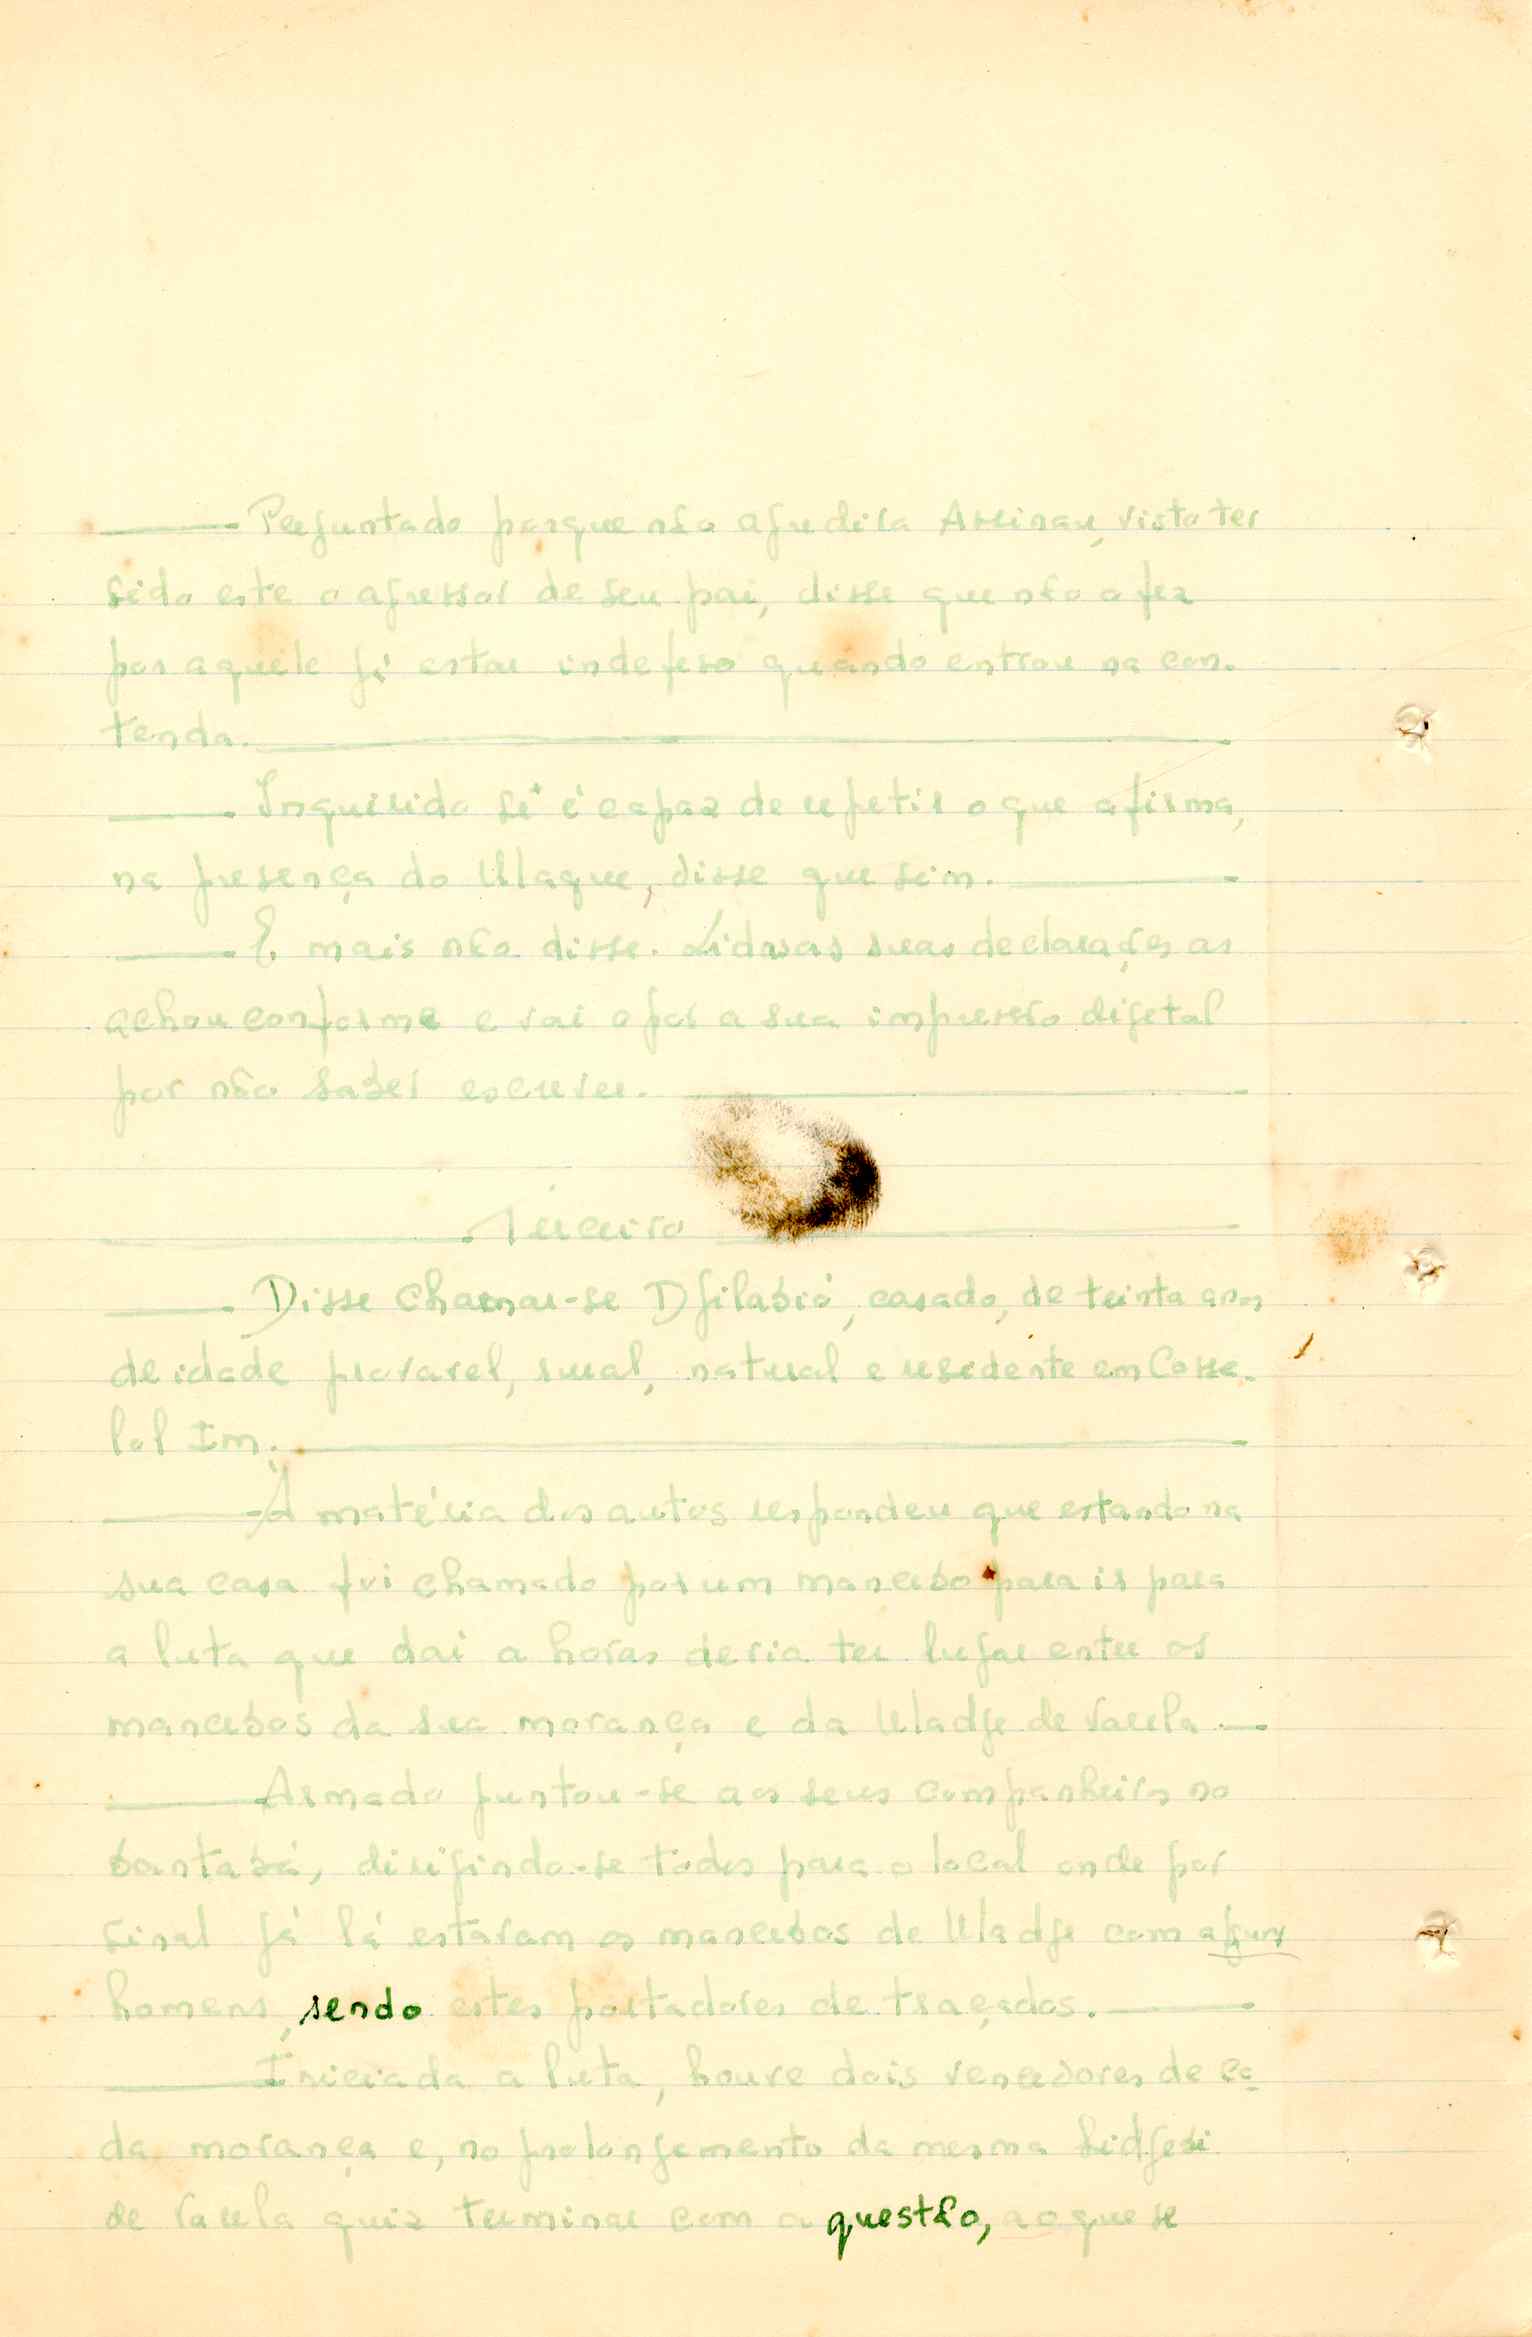 Perguntado porque não agredira Assinau, visto ter
sido este o agressor de seu pai, disse que não o fez
por aquele já estar indefeso quando entrou na con-
tenda.
Inquirido se é capaz de repetir o que afirma,
na presença do Ulaque, disse que sim.
E mais não disse. Lidas as suas declarações as
achou conforme e vai opor a sua impressão digetal
por não saber escrever.
Terceiro
Disse chamar-se Djilabió, casado, de trinta anos
de idade provavel, rural, natural e residente em Cosse-
lol Im.
Á matéria dos autos respondeu que estando na
sua casa foi chamado por um mancebo para ir para
a luta que dai a horas devia ter lugar entre os
mancebos da sua morança e da Uladje de Varela
Armado juntou-se aos seus companheiros no
bantabá, dirigindo-se todos para o local onde por
sinal já lá estavam os mancebos de Uladje com alguns
homens, sendo estes portadores de traçados.
Iniciada a luta, houve dois vencedores de ca-
da morança e, no prolongamento da mesma Sidjeri
de Varela quiz terminar com a questão, ao que se